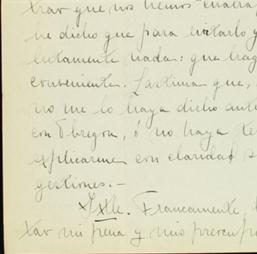 trar que nos hemos
he dicho que para invitarlo y
lutamente nada: que hag
conveniente. Lastima que,
no me lo haya dicho ante
con Obregon, ó no haya te
explicarme con claridad s
gestiones.—
Francamente
xar mi pena y mis preocup